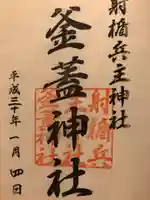 射楯兵主神社
釜蓋神社
平成三十年一月四日
射楯兵